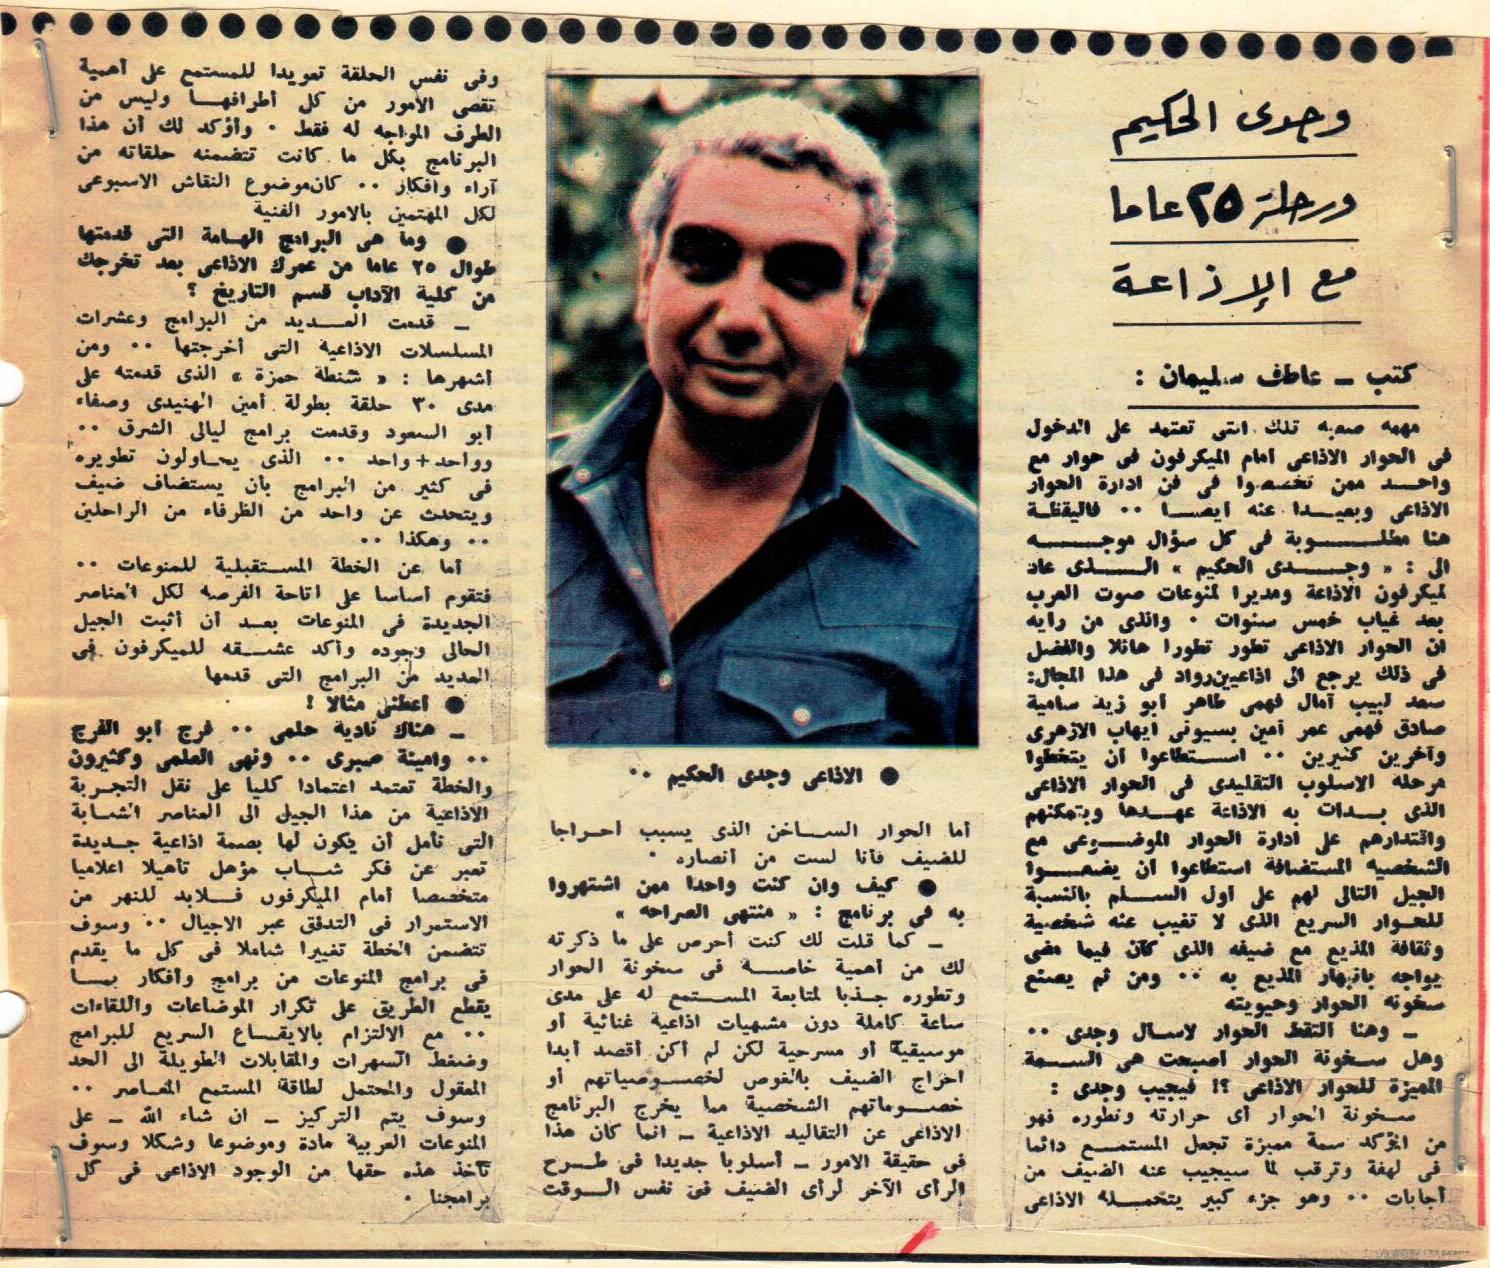 وجدى الحكيم
ورحلة ٢٥ عاما
مع الإذاعة
كتب ــ عاطف سليمان :
مهمه صعبه تلك التى تعتمد على الدخول
فى الحوار الاذاعى أمام الميكرفون فى حوار مع
واحــد ممن تخصصوا فى فن ادارة الحوار
الاذاعى وبعيــدا عنه أيضــا ٠٠ فاليقظة
هنا مطلــــوبة فى كل سؤال موجــــه
الى : « وجــدى الحكيم » الــــذى عاد
لميكرفون الاذاعة ومديرا لمنوعات صوت العرب
بعد غياب خمس سنوات ٠ والذى من رأيه
ان الحوار الاذاعى تطور تطورا هائلا والفضل
فى ذلك يرجع الى اذاعيين رواد فى هذا المجال:
سعد لبيب آمال فهمى طاهر أبو زيد سامية
صادق فهمى عمر أمين بسيونى ايهاب الازهرى
وآخرين كثيرين ٠٠ اســتطاعوا أن يتخطوا
مرحلة الاسلوب التقليدى فى الحوار الاذاعى
الذى بــدأت به الاذاعة عهــدها وبتمكنهم
واقتدارهم على ادارة الحوار الموضــوعى مع
الشخصية المستضافة استطاعوا أن يضعــوا
الجيل التالى لهم على أول الســلم بالنسبة
للحــوار السريع الذى لا تغيب عنه شخصية
وثقافة المذيع مع ضيفه الذى كان فيما مضى
يواجه بانبهار المذيع به ٠٠ ومن ثم يصنع
سخونة الحوار وحيويته
ــ وهنا التقط الحوار لاسـأل وجدى ٠٠
وهل ســخونة الحوار أصبحت هى الســمة
المميزة للحوار الاذاعى ؟! فيجيب وجدى :
ســخونة الحوار أى حرارته وتطوره فهو
من المؤكد سمة مميزة تجعل المستمــع دائما
فى لهفة وترقب لما سيجيب عنه الضيف من
أجابات ٠٠ وهو جزء كبير يتحمــله الاذاعى
● الاذاعى وجدى الحكيم ٠٠
أما الحوار الســاخن الذى يسبب احــراجا
للضيف فأنا لست من أنصاره ٠
● كيف وان كنت واحدا ممن اشتهروا
به فى برنامج : « منتهى الصراحه »
ــ كما قلت لك كنت أحرص على ما ذكرته
لك من أهمية خاصــة فى سخونة الحوار
وتطوره جــذبا لمتابعة المســتمع له على مدى
ساعة كاملة دون مشهيات اذاعية غنائية أو
موسيقية أو مسرحية لكن لم أكن أقصد أبدا
احراج الضيف بالغوص لخصــوصياتهم أو
خصــوماتهم الشخصية مما يخرج البرنامج
الاذاعى عن التقاليد الاذاعية ــ انما كان هذا
فى حقيقة الامور ــ أسلوبا جديدا فى طــرح
الرأى الآخر لرأى الضيف فى نفس الــوقت
وفى نفس الحلقة تعويدا للمستمع على أهمية
تقصى الأمور من كل أطرافهــا وليس من
الطرف المواجه له فقط ٠ وأؤكد لك أن هذا
البرنامج بكل ما كانت تتضمنه حلقاته من
آراء وأفكار ٠٠ كان موضوع النقاش الاسبوعى
لكل المهتمين بالامور الفنية
● وما هى البرامج الهــامة التى قدمتها
طوال ٢٥ عاما من عمرك الاذاعى بعد تخرجك
من كلية الآداب قسم التاريخ ؟
ــ قدمت العــديد من البرامج وعشرات
المسلسلات الاذاعية التى أخرجتها ٠٠ ومن
أشهرها : « شنطة حمزة » الذى قدمته على
مدى ٣٠ حلقة بطولة أمين الهنيدى وصفاء
أبو السعود وقدمت برامج ليالى الشرق ٠٠
وواحد+واحد ٠٠ الذى يحــاولون تطويره
فى كثير من البرامج بأن يستضاف ضيف
ويتحدث عن واحد من الظرفاء من الراحلين
٠٠ وهكذا ٠٠
أما عن الخطة المســتقبلية للمنوعات ٠٠
فتقوم أساسا على اتاحة الفرصة لكل العناصر
الجديدة فى المنوعات بعــد أن أثبت الجيل
الحالى وجوده وأكد عشــقه للميكرفون فى
العديد من البرامج التى قدمها
● أعطنى مثالا !
ــ هناك نادية حلمى ٠٠ فرج أبو الفرج
٠٠ وأمينة صبرى ٠٠ ونهى العلمى وكثيرون
والخطة تعتمد اعتمادا كليا على نقل التجــربة
الاذاعية من هذا الجيل الى العناصر الشــابة
التى نأمل أن يكون لها بصمة اذاعية جــديدة
تعبر عن فكر شــاب مؤهل تأهيلا اعلاميا
متخصصا أمام الميكرفون فــلابد للنهر من
الاستمرار فى التدفق عبر الاجيال ٠٠ وسوف
تتضمن الخطة تغييرا شاملا فى كل ما يقدم
فى برامج المنوعات من برامج وأفكار بمــا
يقطع الطريق على تكرار الموضاعات واللقاءات
٠٠ مع الالتزام بالايقــاع السريع للبرامج
وضغط السهرات والمقابلات الطويلة الى الحد
المعقول والمحتمل لطاقة المستمع المعــاصر ٠٠
وسوف يتم التركيز ــ ان شاء الله ــ على
المنوعات العربية مادة وموضوعا وشكلا وسوف
تأخذ هذه حقها من الوجود الاذاعى فى كل
برامجنا ٠